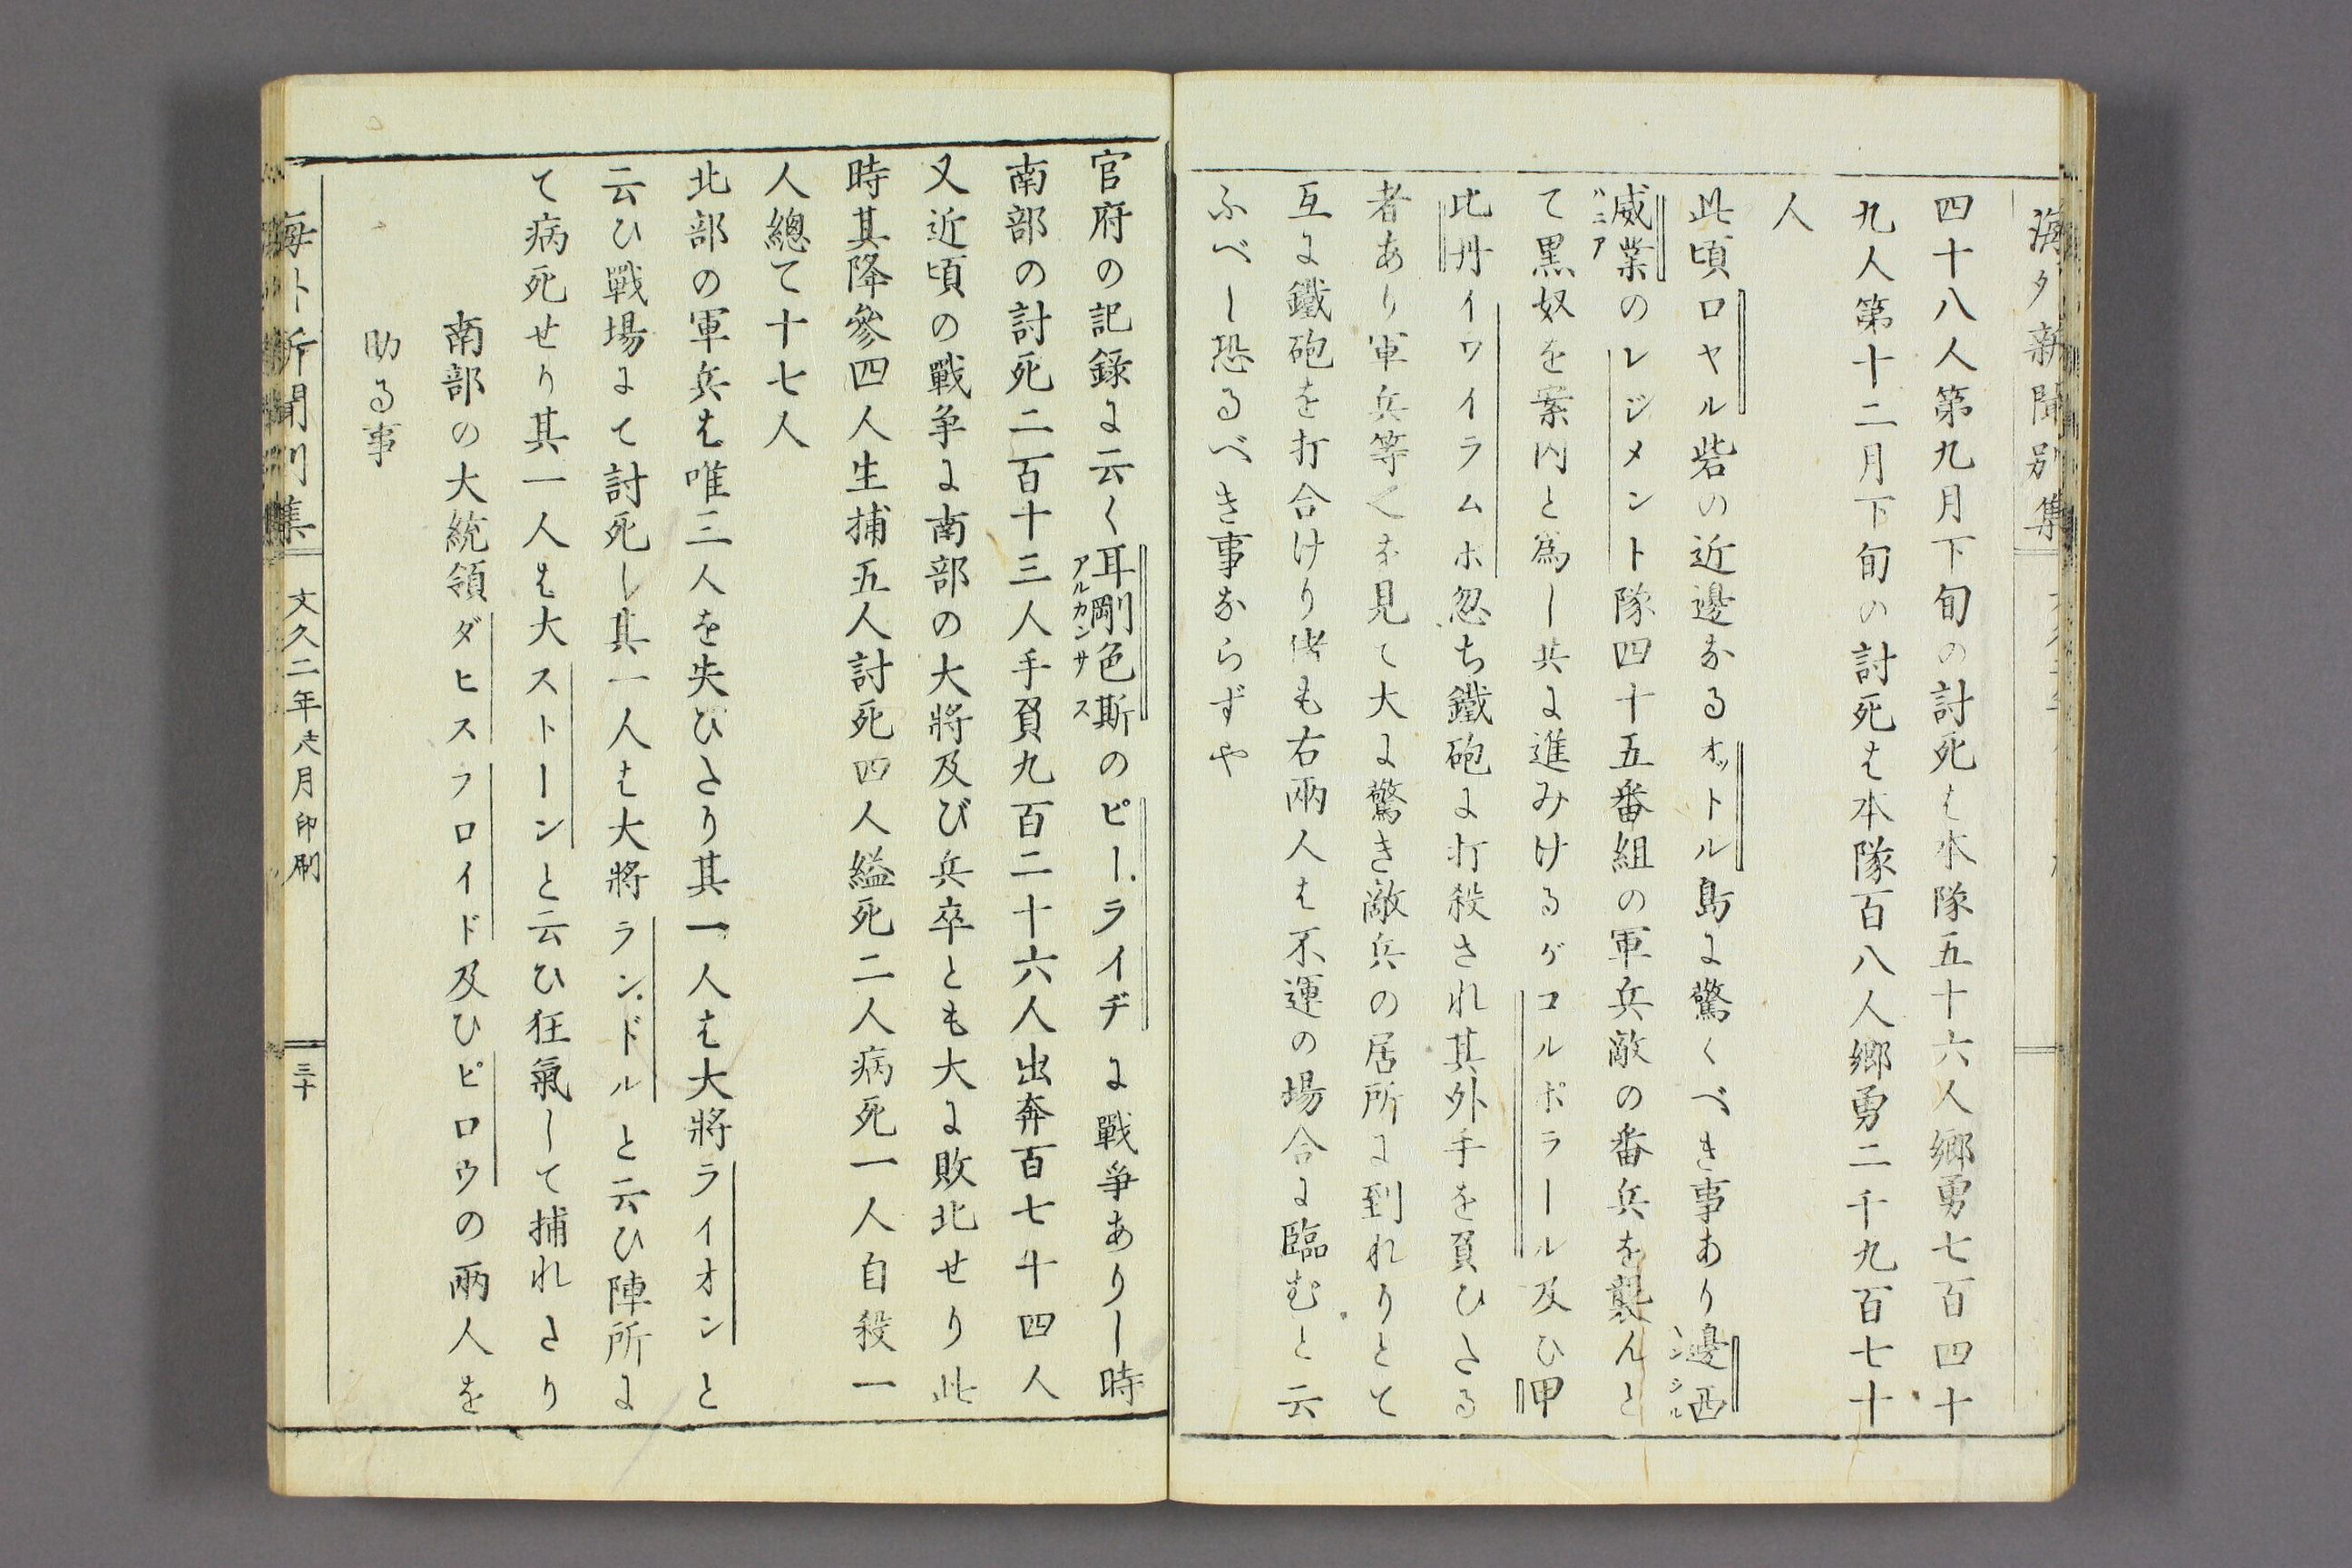 海外新聞別集
四十八人第九月下旬の討死は本隊五十六人郷勇七百四十
九人第十二月下旬の討死は本隊百八人郷勇二千九百七十
人
此頃ロヤル砦の近邊なるオットル島に驚くべき事あり邊西
威業のレジメント隊四十五番組の軍兵敵の番兵を襲んと
バニア
て黒奴を案内と為し共に進みけるゲコルポラール及ひ甲
比丹イワイラムボ忽ち鐵砲に打殺され其外手を負ひたる
者あり軍兵等之を見て大に驚き敵兵の居所に到れりとて
互に鐵砲を打合けり偖も右兩人は不運の場合に臨むと云
ふべし恐るべき事ならずや
官府の記録に云く耳剛色斯のピー、ライヂに戰爭ありし時
アルカンサス
南部の討死二百十三人手負九百二十六人出奔百七十四人
又近頃の戰争に南部の大將及び兵卒とも大に敗北せり此
時其降參四人生捕五人討死四人縊死二人病死一人自殺一
人總て十七人
北部の軍兵は唯三人を失ひたり其一人は大將ライオンと
云ひ戰場にて討死し其一人は大將ラン、ドルと云ひ陣所に
て病死せり其一人は大ストーンと云ひ狂氣して捕れたり
南部の大統領ダヒスフロイド及ひピロウの兩人を
助る事
海外新聞別集
文久二年
月印刷
三十